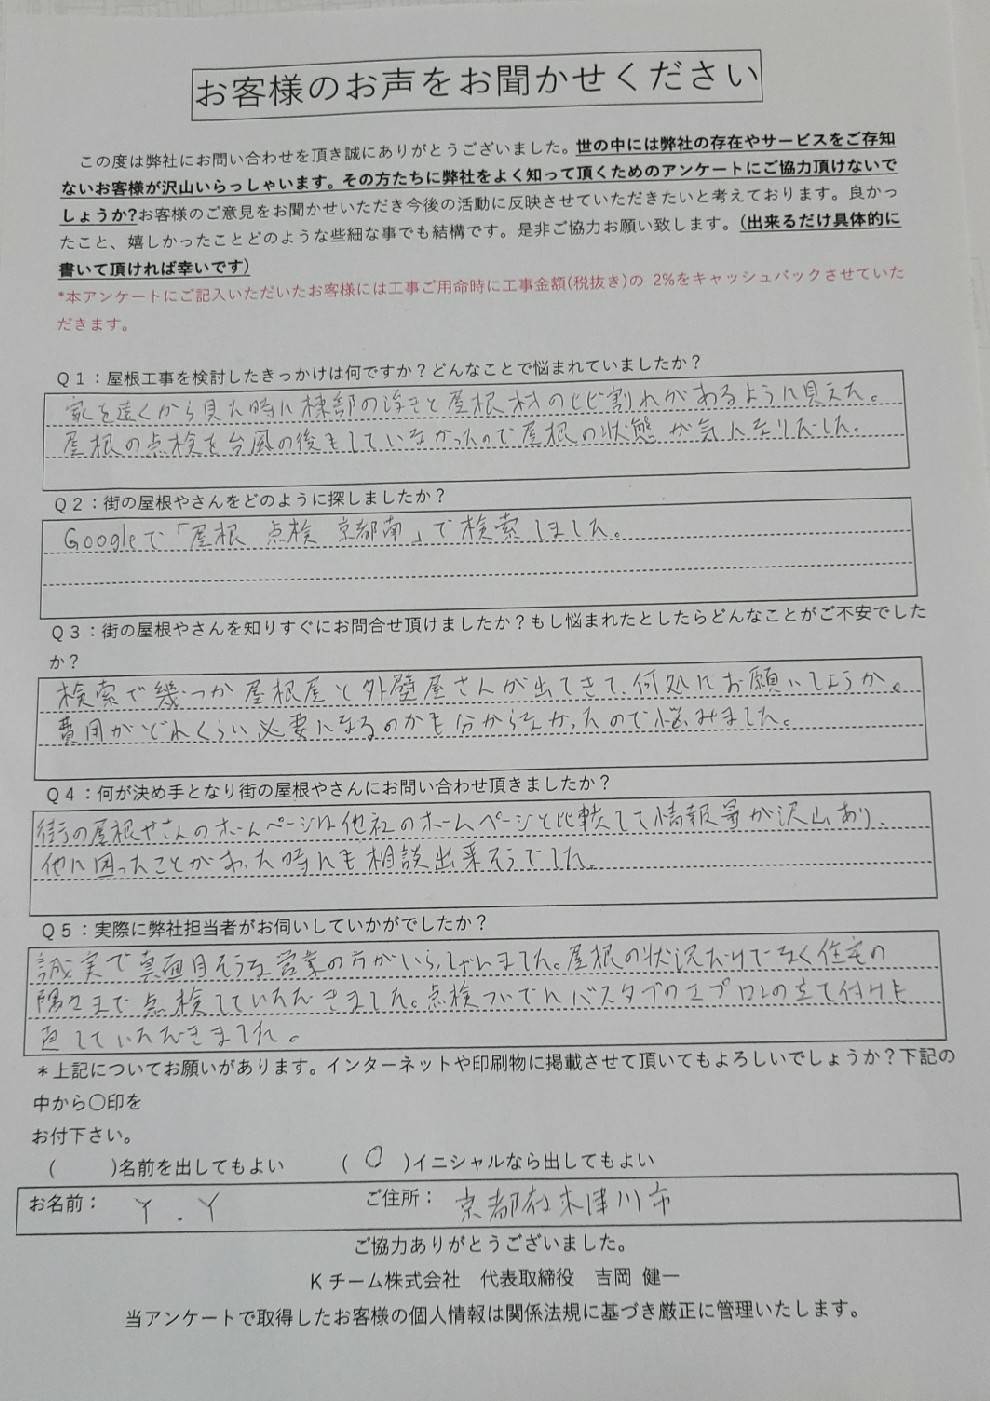 お客様のお声をお聞かせください
この度は弊社にお問い合わせを頂き誠にありがとうございました。世の中には弊社の存在やサービスをご存知
ないお客様が沢山いらっしゃいます。その方たちに弊社をよく知って頂くためのアンケートにご協力頂けないで
しょうか?お客様のご意見をお聞かせいただき今後の活動に反映させていただきたいと考えております。良かっ
たこと、嬉しかったことどのような些細な事でも結構です。是非ご協力お願い致します。(出来るだけ具体的に
書いて頂ければ幸いです)
*本アンケートにご記入いただいたお客様には工事ご用命時に工事金額(税抜き)の 2%をキャッシュバックさせていた
だきます。
Q1:屋根工事を検討したきっかけは何ですか?どんなことで悩まれていましたか?
家を遠くから見た時に棟部の浮きと屋根材のヒビ割れがあるように見えた。
屋根の点検を台風の後もしていなかったので屋根の状態が気になりました。
Q2:街の屋根やさんをどのように探しましたか?
Googleで「屋根 点検 京都南」で検索しました。
Q3:街の屋根やさんを知りすぐにお問合せ頂けましたか?もし悩まれたとしたらどんなことがご不安でした
か?
検索で幾つか屋根屋と外壁屋さんが出てきて、何処にお願いしようか。
費用がどれくらい必要になるのかも分からなかったので悩みました。
Q4:何が決め手となり街の屋根やさんにお問い合わせ頂きましたか?
街の屋根やさんのホームページは他社のホームページと比較して情報量が沢山あり、
他に困ったことがあった時にも相談出来そうでした。
Q5:実際に弊社担当者がお伺いしていかがでしたか?
誠実で真面目そうな営業の方がいらっしゃいました。屋根の状況だけでなく住宅の
隅々まで点検していただきました。点検ついでにバスタブのエプロンの立て付けも
直していただきました。
*上記についてお願いがあります。インターネットや印刷物に掲載させて頂いてもよろしいでしょうか?下記の
中から〇印を
お付下さい。
( )名前を出してもよい ( ○ )イニシャルなら出してもよい
お名前: Y.Y ご住所: 京都府木津川市
ご協力ありがとうございました。
Kチーム株式会社 代表取締役 吉岡 健一
当アンケートで取得したお客様の個人情報は関係法規に基づき厳正に管理いたします。